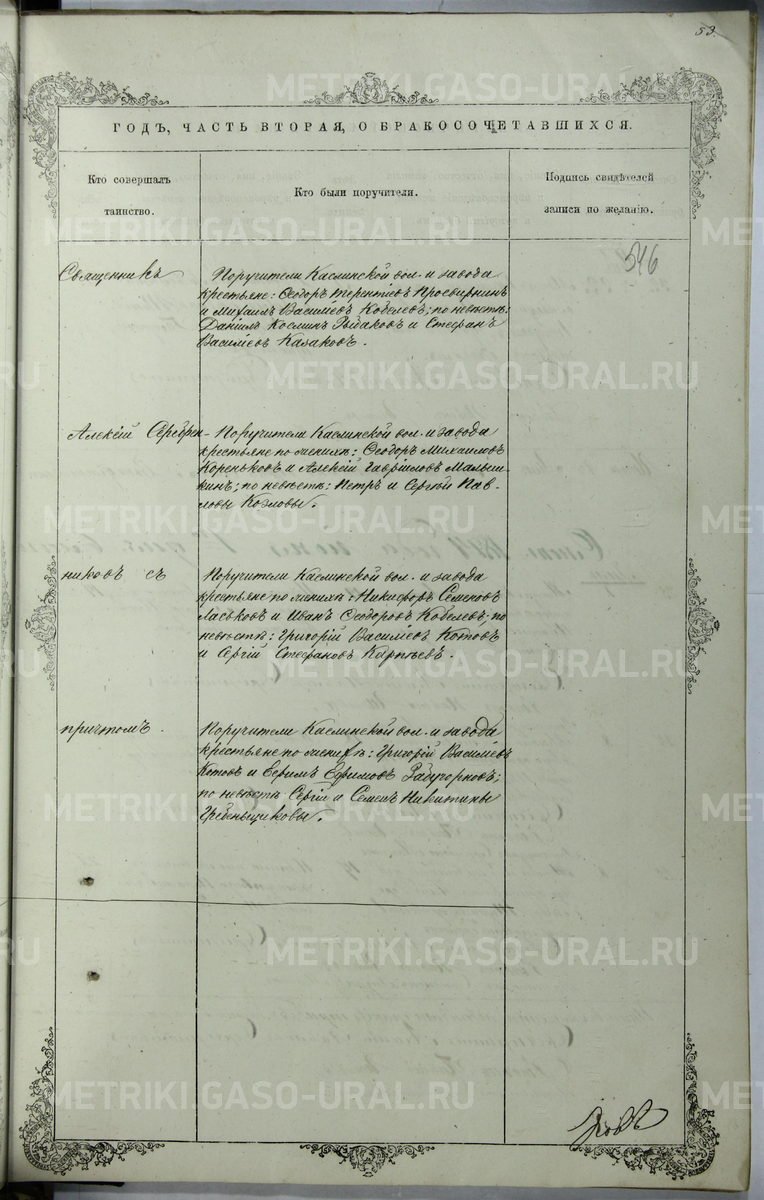 53.
ГОДЪ, ЧАСТЬ ВТОРАЯ, О БРАКОСОЧЕТАВШИХСЯ.
Кто совершалъ таинство.
Кто были поручители.
Подпись свидѣтелей записи по желанію.
546
Священникъ
Поручители Каслинской вол. и завода
крестьяне: Ѳеодоръ Терентіевъ Просвирнинъ
и Михаилъ Василіевъ Кобелевъ; по невѣстѣ:
Даніилъ Космин Рыбаковъ и Стефанъ
Василіевъ Казаковъ.
Алексій Серебрен-
Поручители Каслинской вол. и завода
крестьяне по женихѣ: Ѳеодоръ Михаиловъ
Кореньковъ и Алексій Гавриловъ Малыш-
кинъ; по невѣстѣ: Петръ и Сергій Пав-
ловы Козловы.
никовъ съ
Поручители Каслинской вол. и завода
крестьяне по женихѣ: Никифоръ Семеновъ
Ласьковъ и Иванъ Ѳеодоровъ Кобелевъ; по
невѣстѣ: Григорій Василіевъ Котовъ
и Сергій Стефановъ Карпѣевъ.
причтомъ.
Поручители Каслинской вол. и завода
крестьяне по женихѣ: Григорій Василіевъ
Котовъ и Ефимъ Ефимовъ
по невѣстѣ Сергій и Семенъ Никитины
Гребеньщиковы.
METRIKI.GASO-URAL.RU